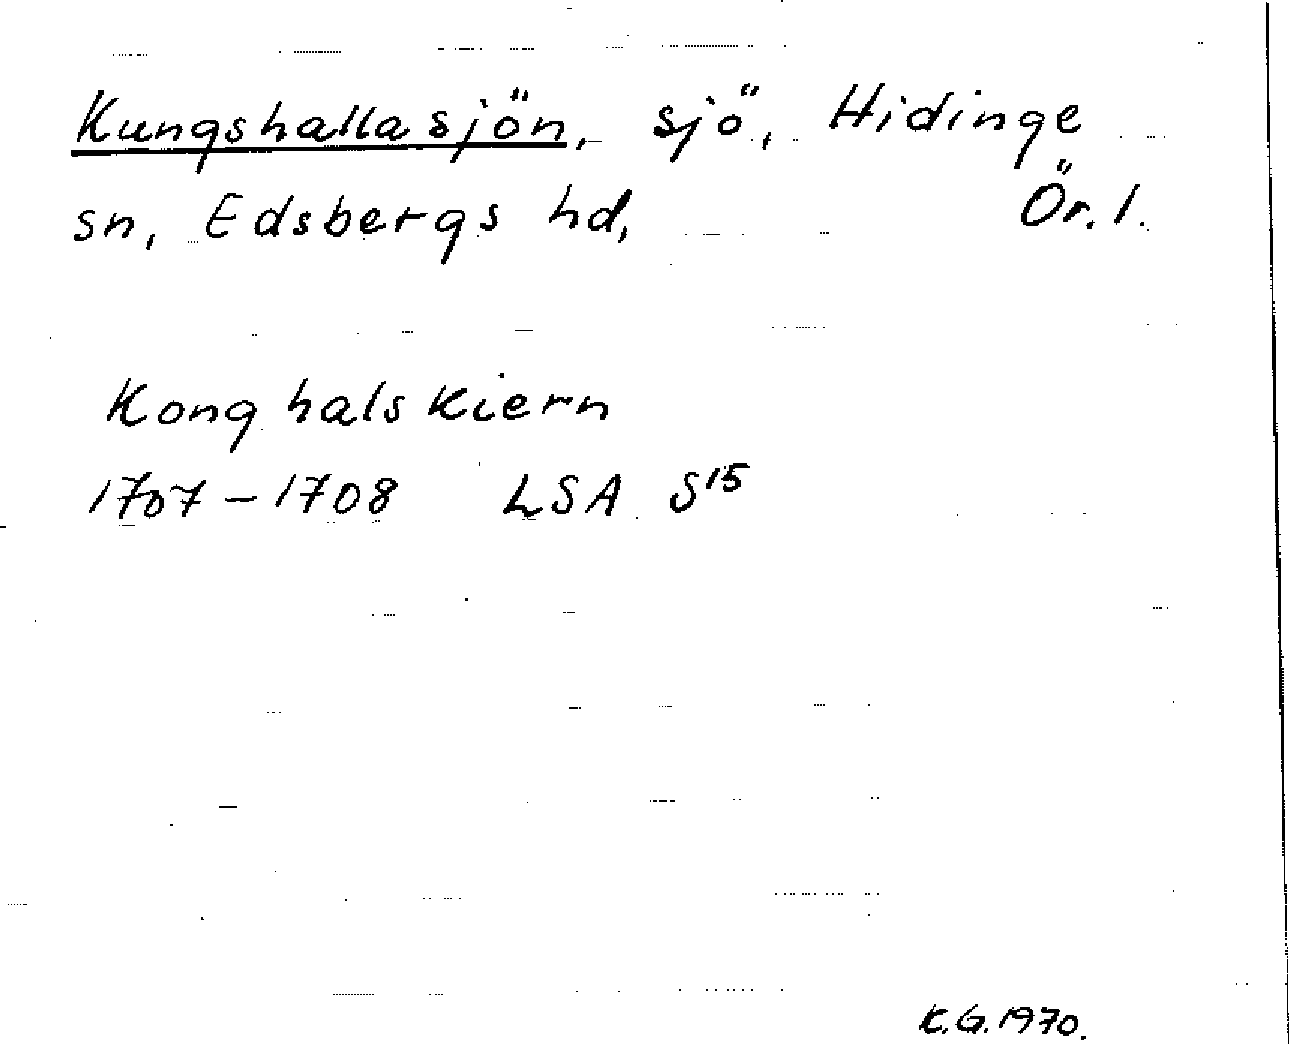 Kungshallasjön, sjö, Hidinge
sn, Edsbergs hd, Ör. l.
Konghalskiern
1707-1708 LSA S15
K.G. 1970.